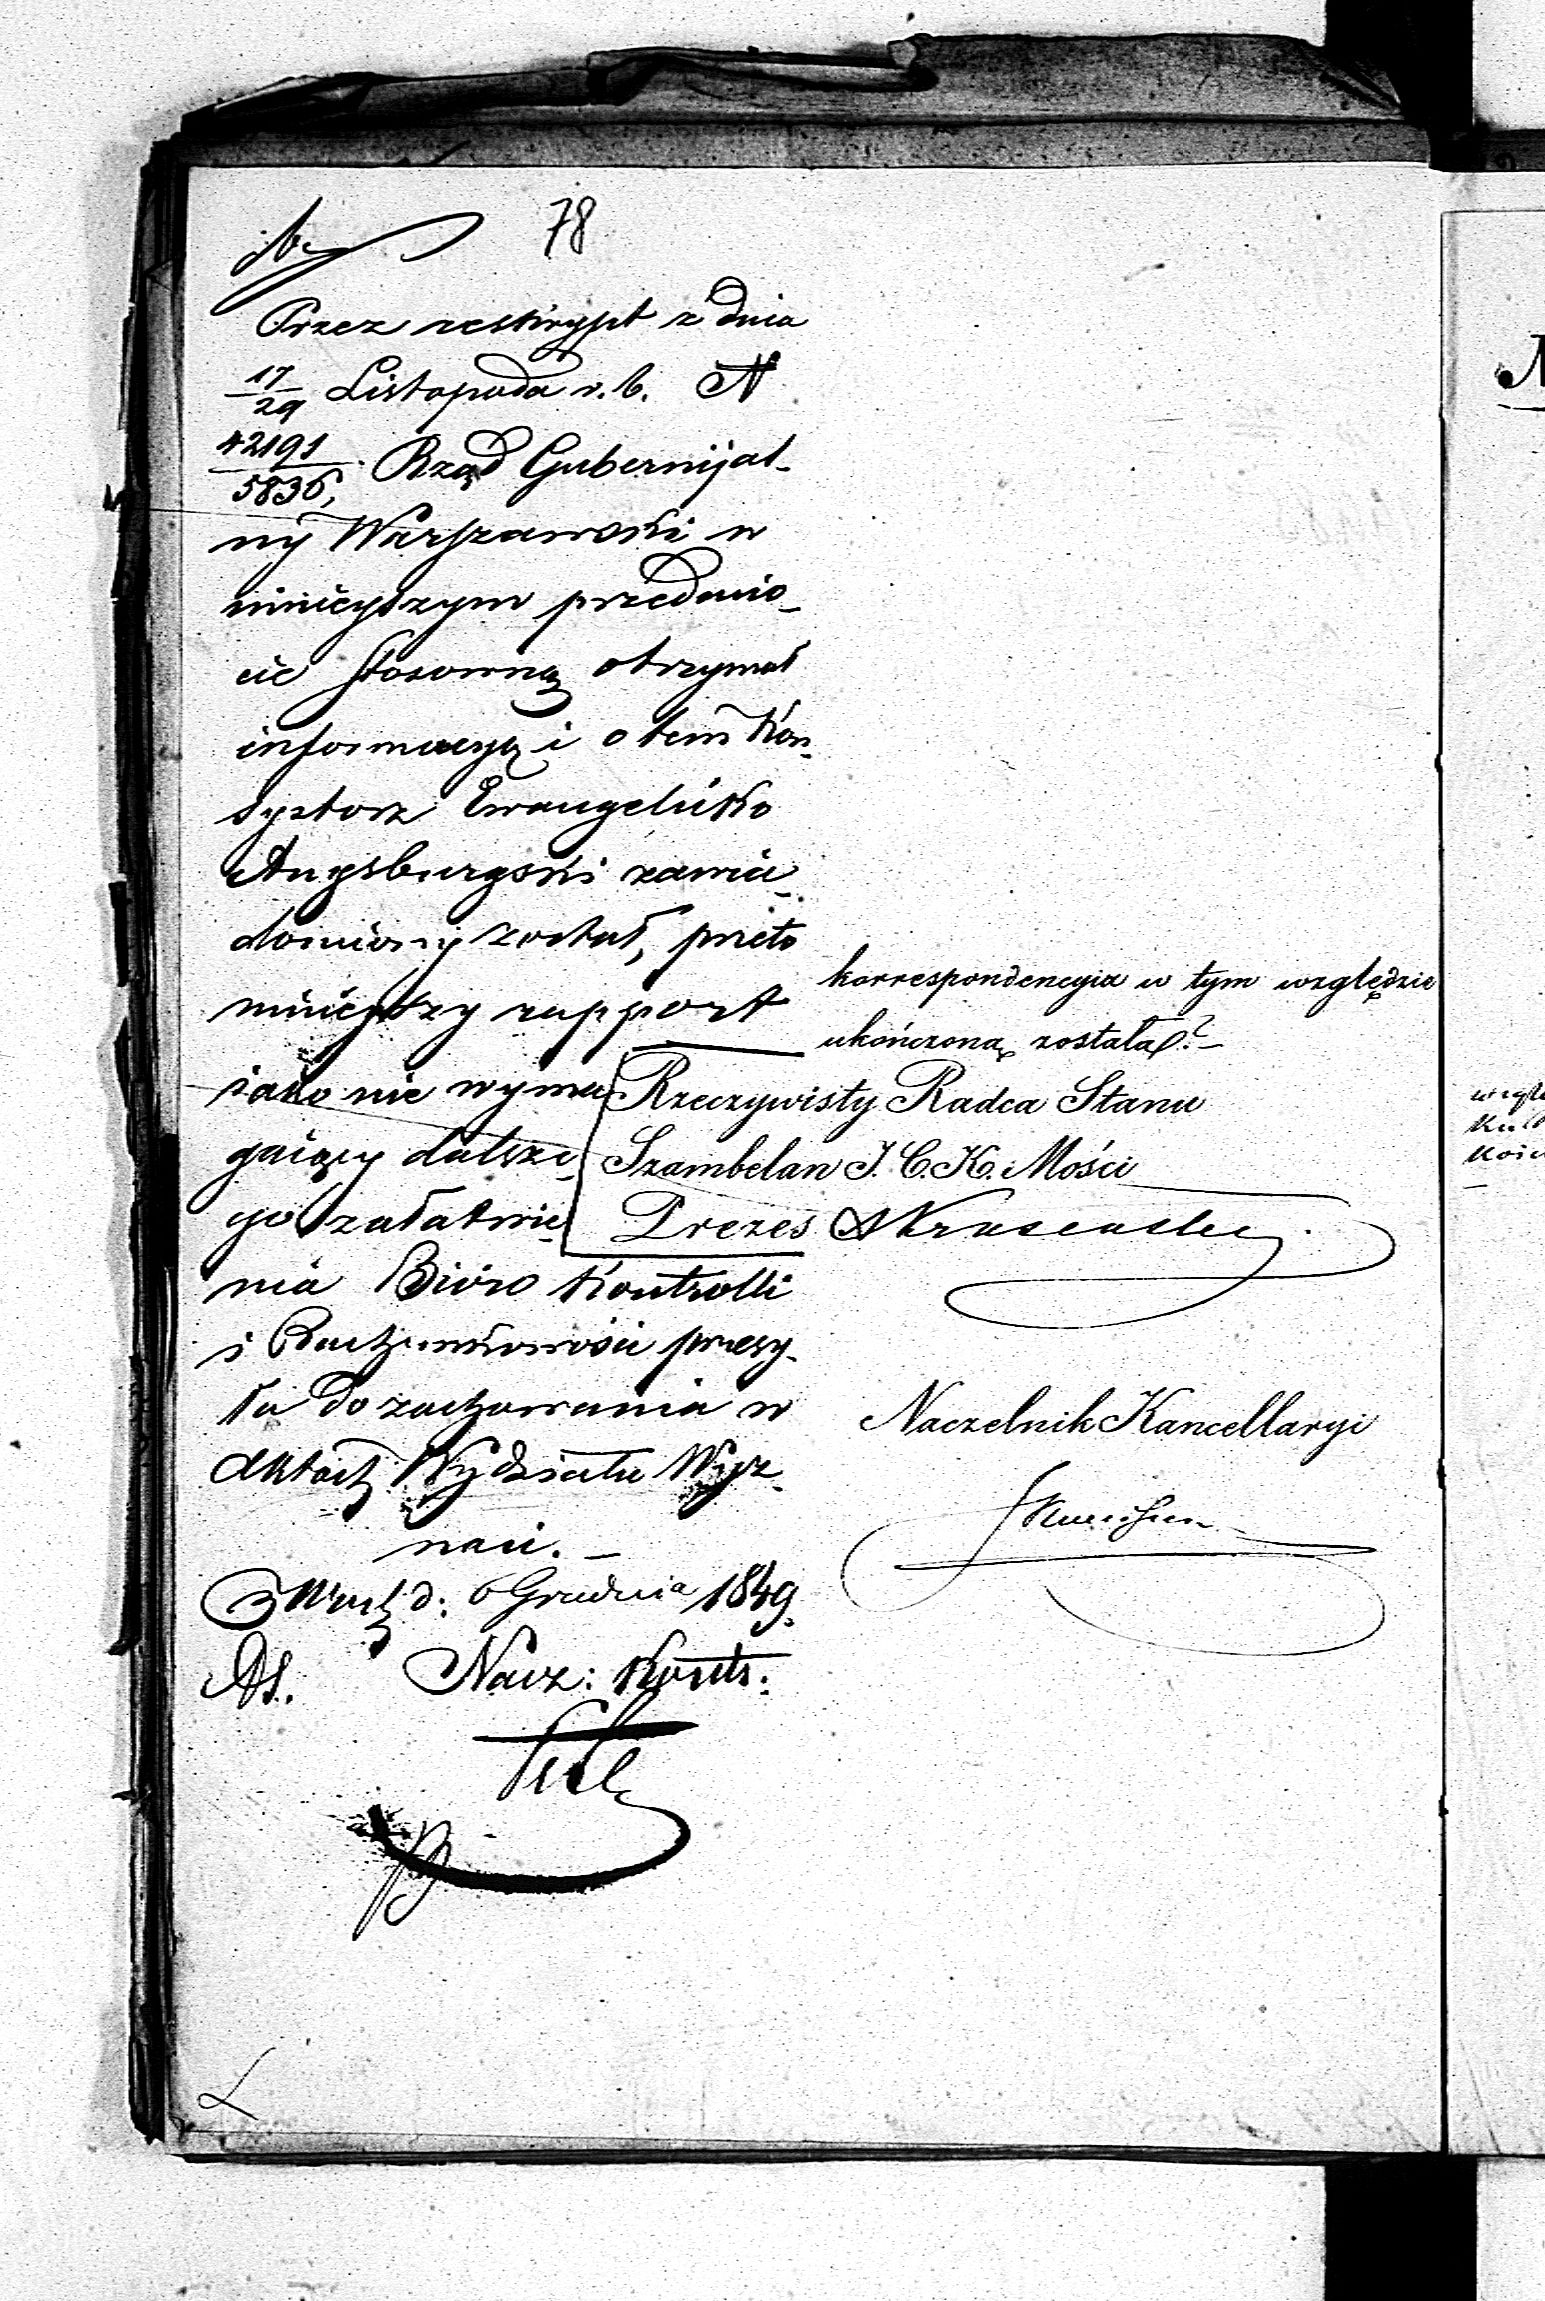 78
Przez reskrypt z dnia
17/29 Listopada r. b. N
42191/5836, Rząd Gubernijal-
ny Warszawski w
ninieyszym przedmio-
cie stosowną otrzymał
informacyą i o tem Kon-
systorz Ewangelicko
Augsburgski zawia-
domiony został, przeto
ninieyszy rapport
iako nie wyma-
gaiący dalsze-
go załatwie-
nia Biuro Kontrolli
i Rachunkowości przesy-
ła do zachowania w
Aktach Wydziału Wyz-
nań. –
w Warsz d: 6 Grudnia 1849.
Nacz: Kontr:
korrespondencyia w tym względzie
ukończoną została? –
Rzeczywisty Radca Stanu
Szambelan J. C. K. Mości
Prezes
Naczelnik Kancellaryi